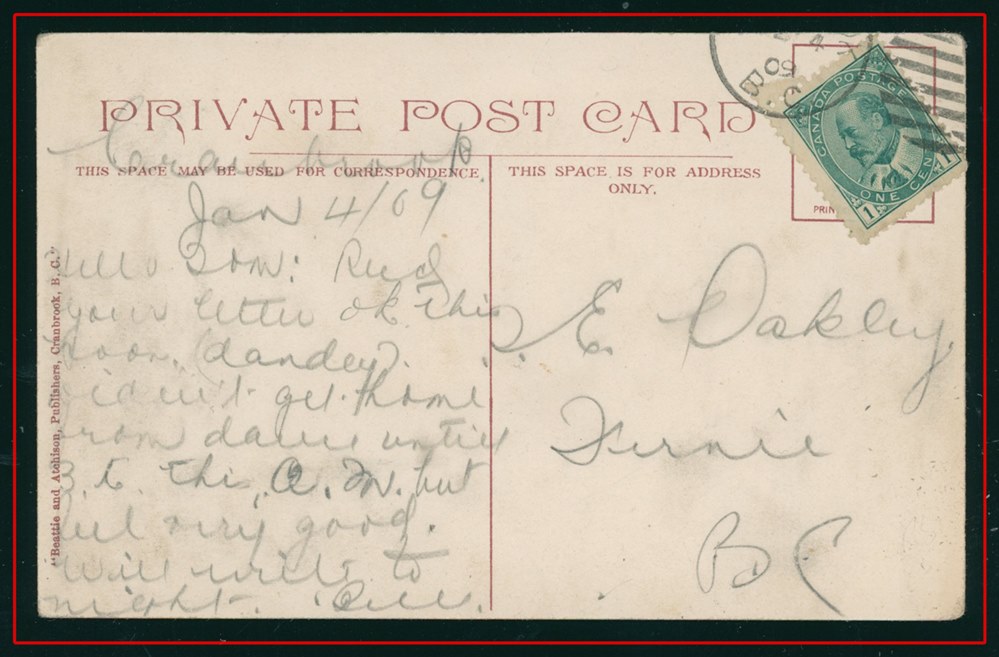 PRIVATE POST CARD
Cranbrook
THIS SPACE MAY BE USED FOR CORRESPONDENCE.
THIS SPACE IS FOR ADDRESS
ONLY.
Jan 4/09
Hello Tom: Recd
your letter ok this
noon. (dandey).
didn't get home
from dance until
3. to this A.M. but
feel very good.
will write to
night. Bill.
S. E. Oakley,
Fernie
B C
"Beattie and Atchison, Publishers, Cranbrook, B. C."
CANADA POSTAGE
ONE CENT
1 1
PRIN
4
09
B.C